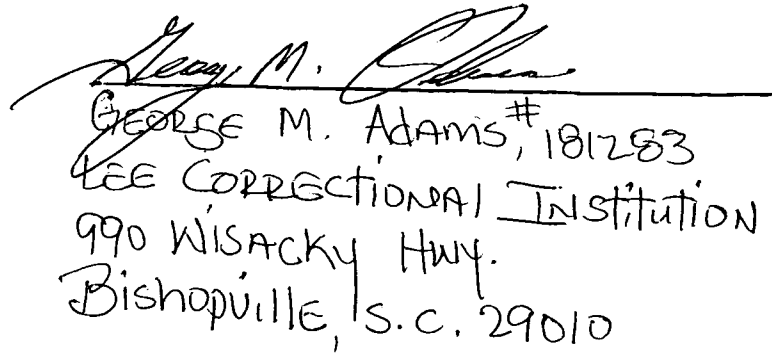 George M. Adams
GEORGE M. AdAMS, #181283
LEE CORRECTIONAL INSTITUTION
990 WISACKY HWY.
BishopvillE, S.C. 29010